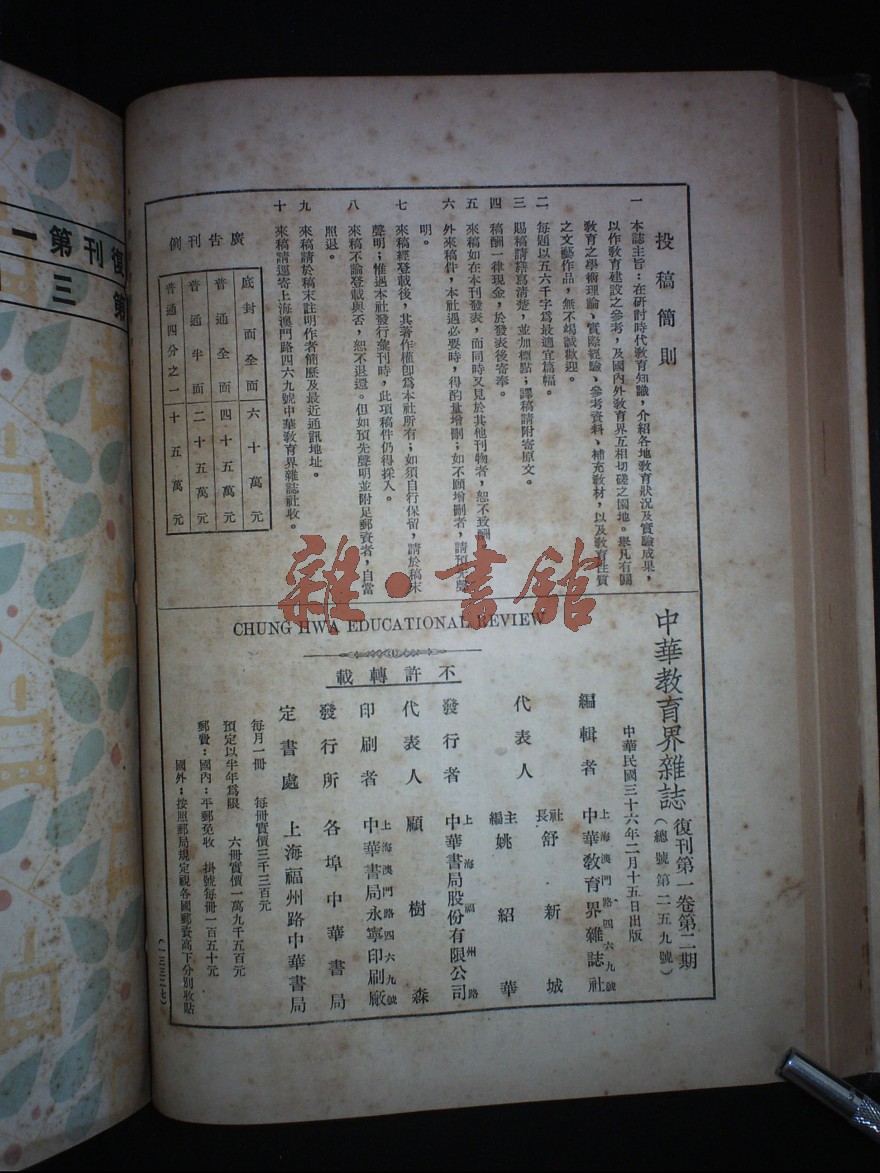 投稿簡則
一 本誌主旨：在研討時代教育知識，介紹各地教育狀況及實驗成果，
以作教育建設之參考，及國內外教育界互相切磋之園地。舉凡有關
教育之學術理論、實際經驗、參考資料、補充教材，以及教育性質
之文藝作品，無不竭誠歡迎。
二 每題以五六千字為最適宜篇幅。
三 賜稿請謄寫清楚，並加標點；譯稿請附寄原文。
四 稿酬一律現金，於發表後寄奉。
五 來稿如在本刊發表，而同時又見於其他刊物者，恕不致酬。
六 外來稿件，本社遇必要時，得酌量增刪；如不願增刪者，請預先聲
明。
七 來稿經登載後，其著作權卽為本社所有；如須自行保留，請於稿末
聲明；惟遇本社發行彙刊時，此項稿件仍得採入。
八 來稿不論登載與否，恕不退還。但如預先聲明並附足郵資者，自當
照退。
九 來稿請於稿末註明作者簡歷及最近通訊地址。
十 來稿請逕寄上海澳門路四六九號中華教育界雜誌社收。
廣告刊例
底封面全面 六十萬元
普通全面 四十五萬元
普通半面 二十五萬元
普通四分之一 十五萬元
雜·書館
CHUNG HWA EDUCATIONAL REVIEW
中華教育界雜誌 復刊第一卷第二期
（總號第二五九號）
中華民國三十六年二月十五日出版
編輯者 上海澳門路四六九號
中華教育界雜誌社
代表人 社長 舒新城
主編 姚紹華
發行者 上海福州路
中華書局股份有限公司
代表人 顧樹森
印刷者 上海澳門路四六九號
中華書局永寧印刷廠
發行所 各埠中華書局
定書處 上海福州路中華書局
不許轉載
每月一冊 每冊實價三千三百元
預定以半年為限 六冊實價一萬九千五百元
郵費：國內：平郵免收 掛號每冊一百五十元
國外：按照郵局規定視各國郵資高下分別收貼
（一三三二七）
復刊第一
第三